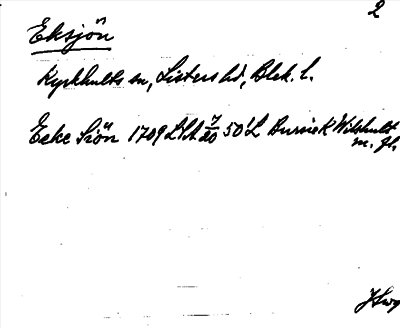 2
Eksjön
Kyrkhults sn, Listers hd, Blek. l.
Eske Siön 1709 LSA 7/20 50'L Bursie K Wilshult
m. fl.